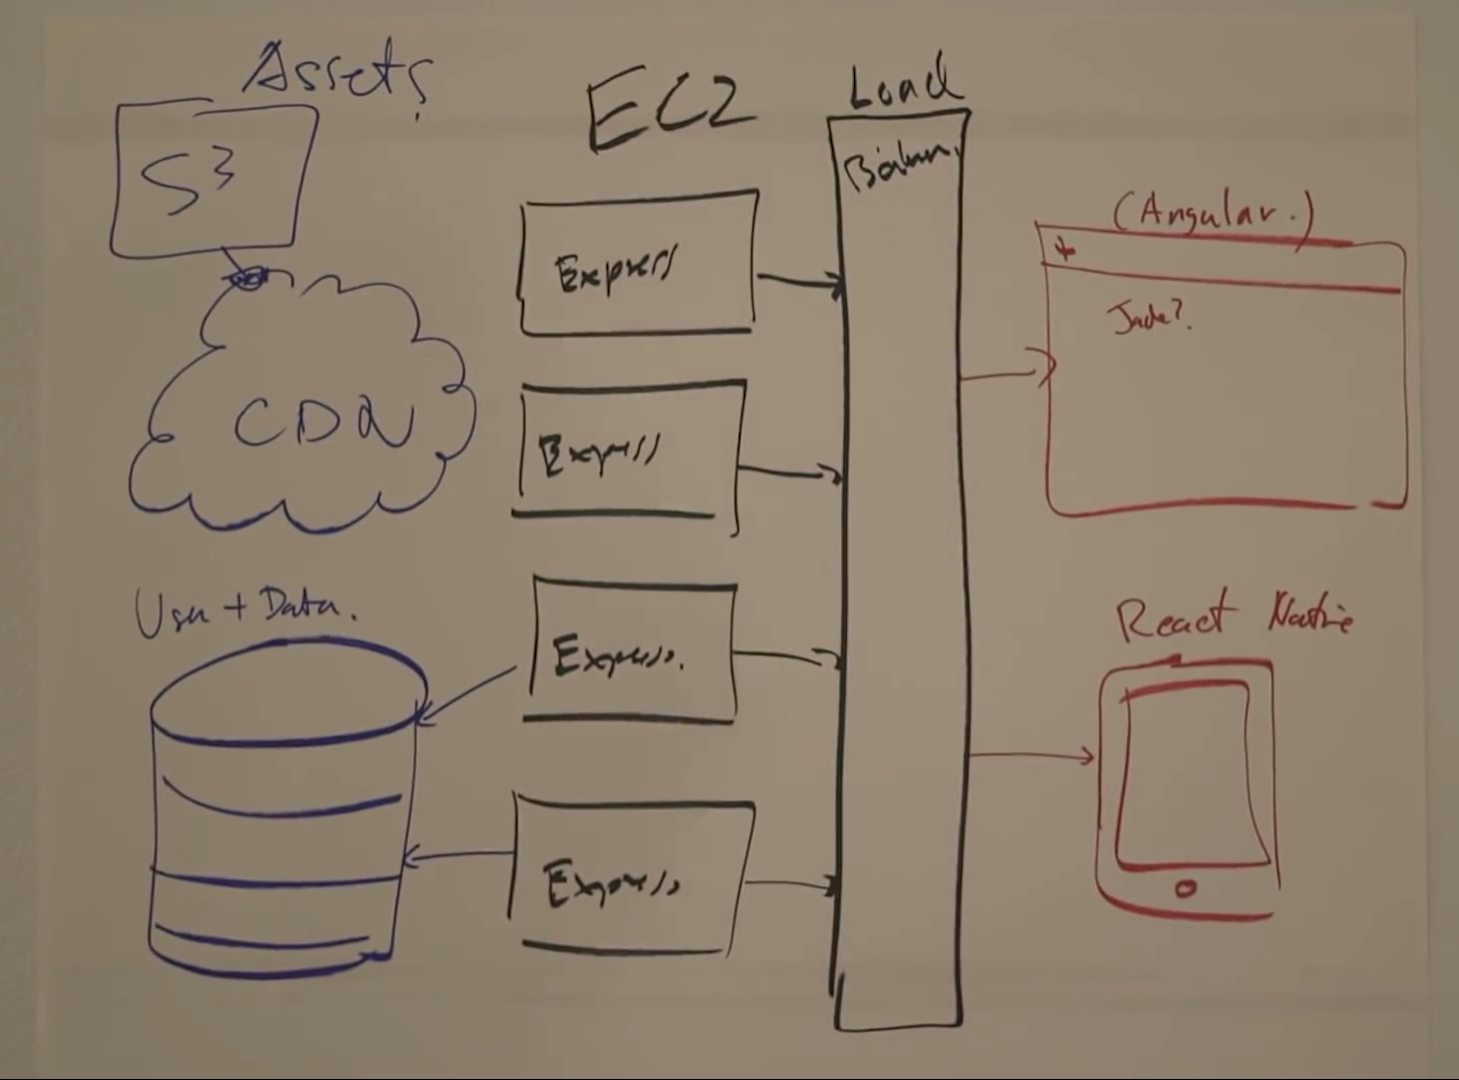 Assets
S3
CDN
User + Data.
EC2
Express
Express
Express.
Express
Load
(Angular.)
Jade?
React Native